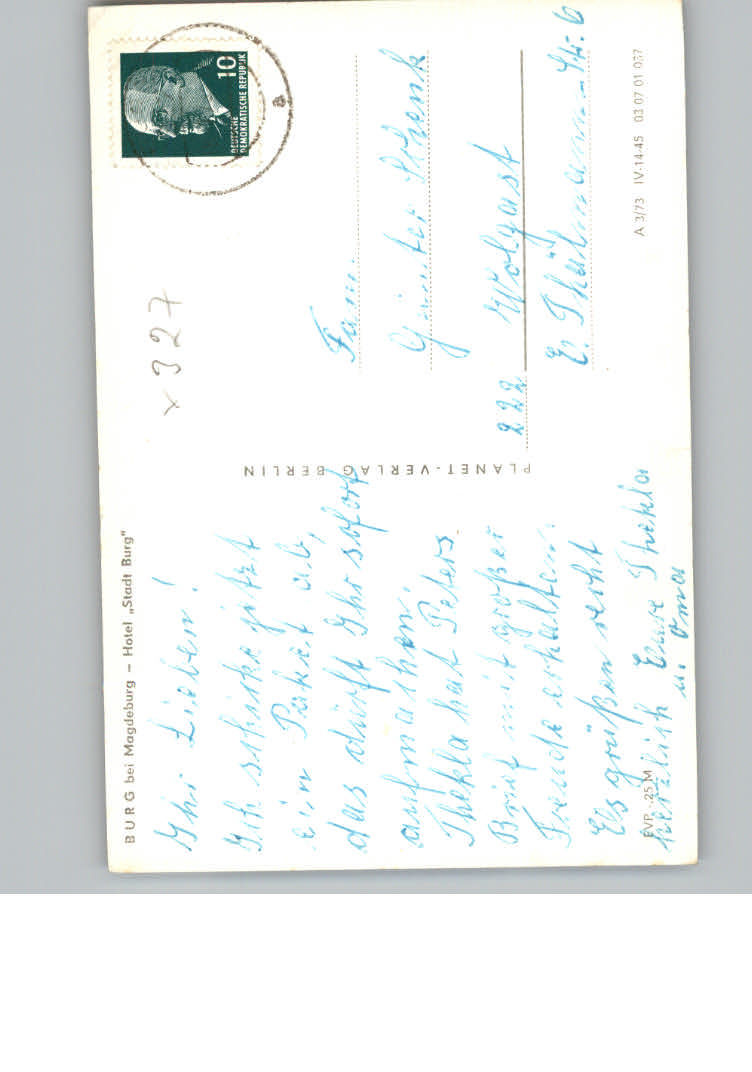 BURG bei Magdeburg – Hotel „Stadt Burg"
Ihr Lieben!
Ich schicke jetzt
ein Paket ab,
das dürft Ihr sofort
aufmachen.
Thekla hat Peters
Brief mit großer
Freude erhalten.
Es grüßen recht
herzlich Eure Thekla
u. Oma
EVP -,25 M
PLANET-VERLAG BERLIN
x 327
10
DEUTSCHE
DEMOKRATISCHE REPUBLIK
a
Fam.
Günter Schenk
222 Wolgast
E. Thälmann-Str. 6
A 3/73 IV-14-45 03 07 01 037